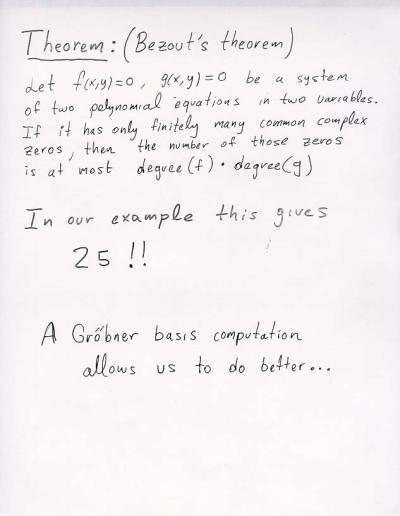 Theorem: (Bezout's theorem)
Let f(x,y)=0, g(x,y)=0 be a system
of two polynomial equations in two variables.
If it has only finitely many common complex
zeros, then the number of those zeros
is at most degree(f) · degree(g)
In our example this gives
25 !!
A Gröbner basis computation
allows us to do better...